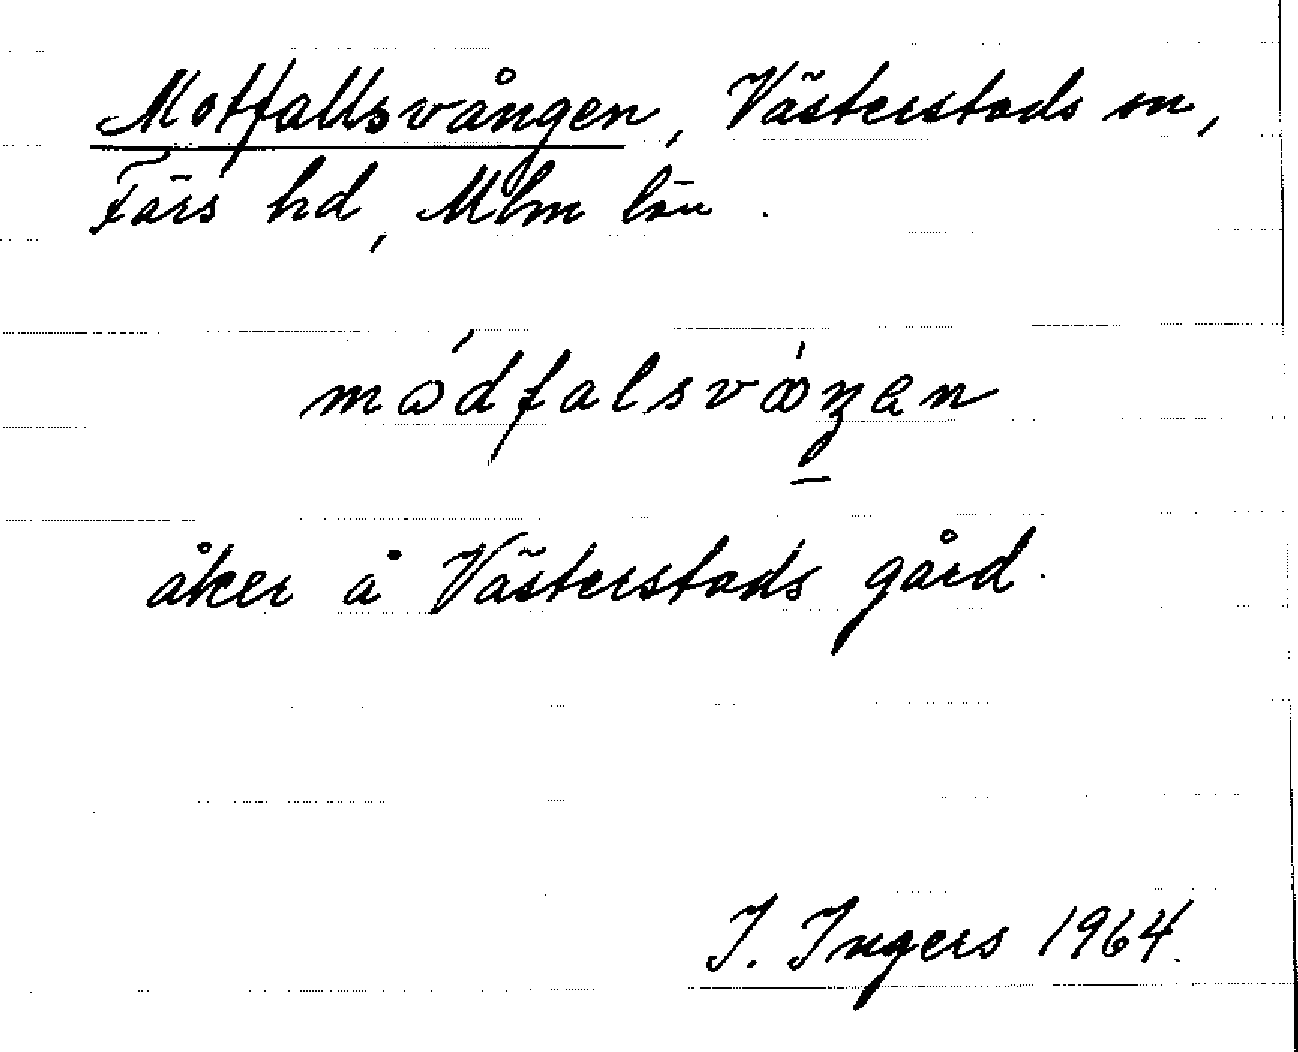 Motfallsvången, Västerstads sn,
Färs hd, Mlm län.
åker å Västerstads gård.
I. Ingers 1964.